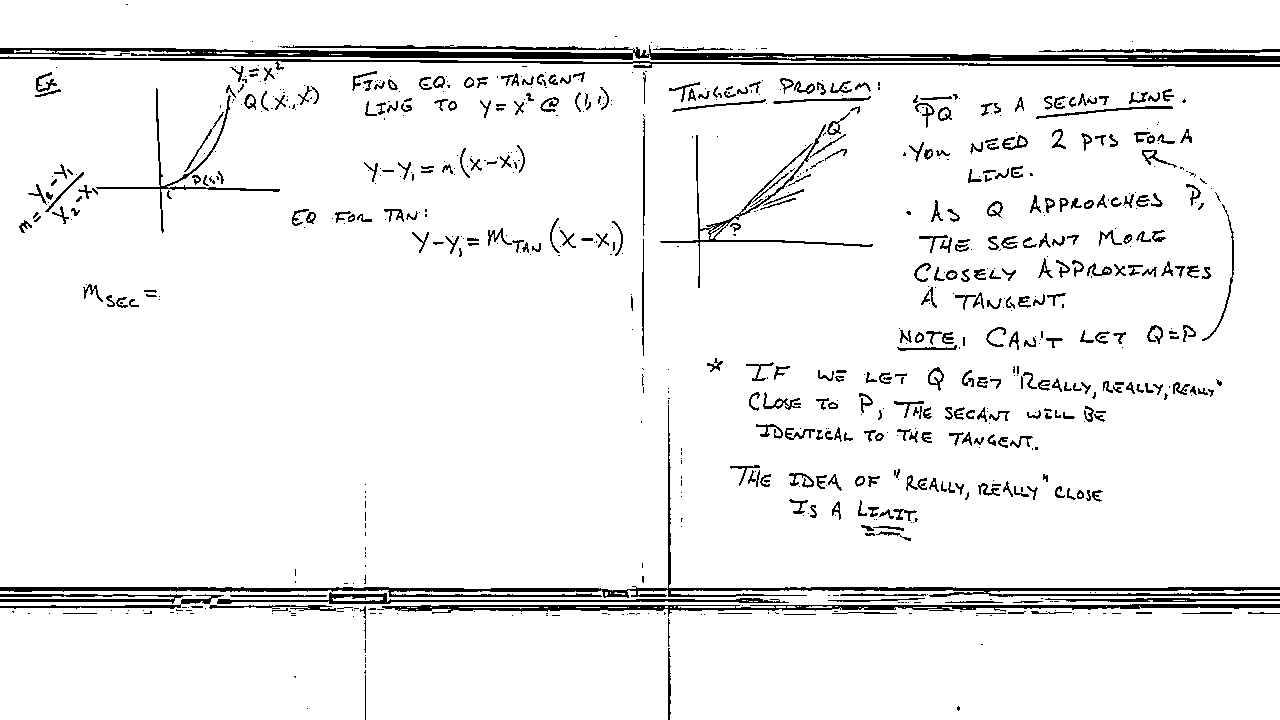 Ex
Y=X²
Q(X,X²)
P(1,1)
1
m=Y₂-Y₁/X₂-X₁
FIND EQ. OF TANGENT
LING TO Y=X² @ (1,1)
Y-Y₁=m(X-X₁)
EQ FOR TAN:
Y-Y₁=M_TAN(X-X₁)
M_SEC=
TANGENT PROBLEM:
Q
P
"PQ" IS A SECANT LINE.
·YOU NEED 2 PTS FOR A
LINE.
· AS Q APPROACHES P,
THE SECANT MORE
CLOSELY APPROXIMATES
A TANGENT.
NOTE: CAN'T LET Q=P
* IF WE LET Q GET "REALLY, REALLY, REALLY"
CLOSE TO P, THE SECANT WILL BE
IDENTICAL TO THE TANGENT.
THE IDEA OF "REALLY, REALLY" CLOSE
IS A LIMIT.